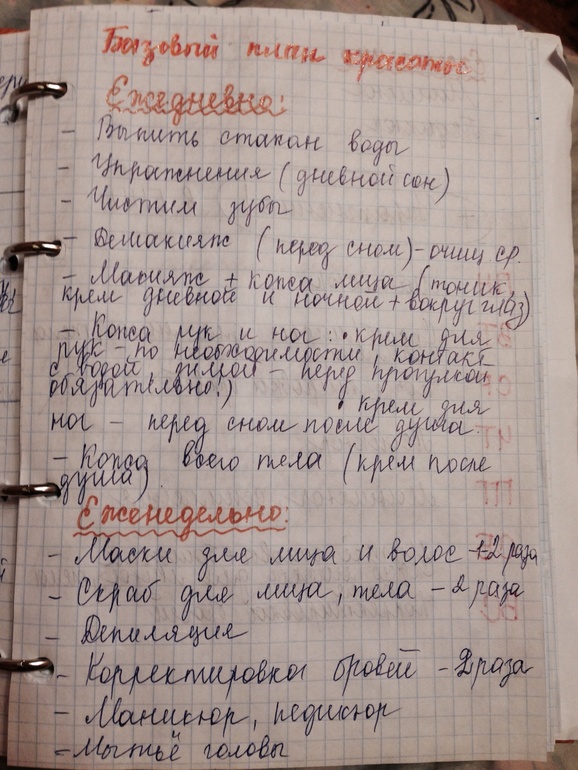 Базовый план красоты
Ежедневно:
- Выпить стакан воды
- Упражнения (дневной сон)
- Чистим зубы
- Демакияж (перед сном) - очищ. ср.
- Макияж + кожа лица (тоник
крем дневной и ночной + вокруг глаз)
- Кожа рук и ног: • крем для
рук - по необходимости, контакт
с водой, зимой - перед прогулкой
обязательно!)
• крем для
ног - перед сном после душа.
- Кожа всего тела (крем после
душа)
Еженедельно:
- Маски для лица и волос - 1-2 раза
- Скраб для лица, тела - 2 раза
- Депиляция
- Корректировка бровей - 2 раза
- Маникюр, педикюр
- Мытьё головы